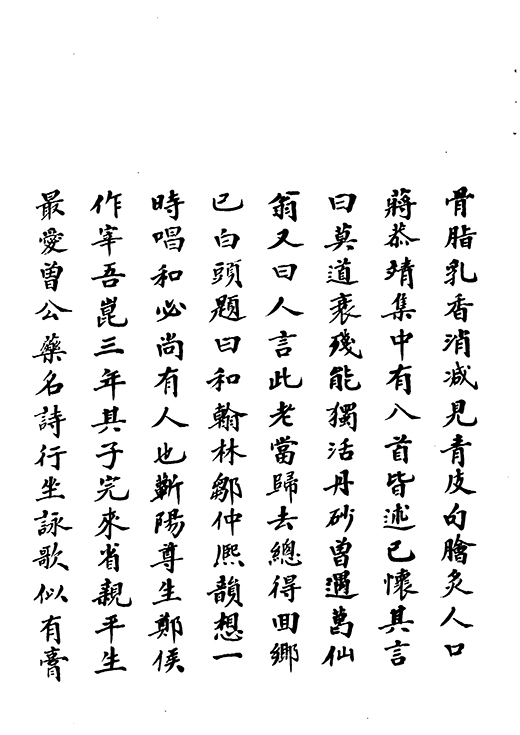 骨脂乳香消減見青皮白膾炙人口
蔣恭靖集中有八首皆述已懷其言
曰莫道衰殘能獨活丹砂曽遇葛仙
翁又曰人言此老當歸去總得回鄉
已白頭題曰和翰林鄒仲熈韻想一
時唱和必尚有人也蘄陽尊生鄭侯
作宰吾崑三年其子完來省親平生
最愛曽公藥名詩行坐詠歌似有膏